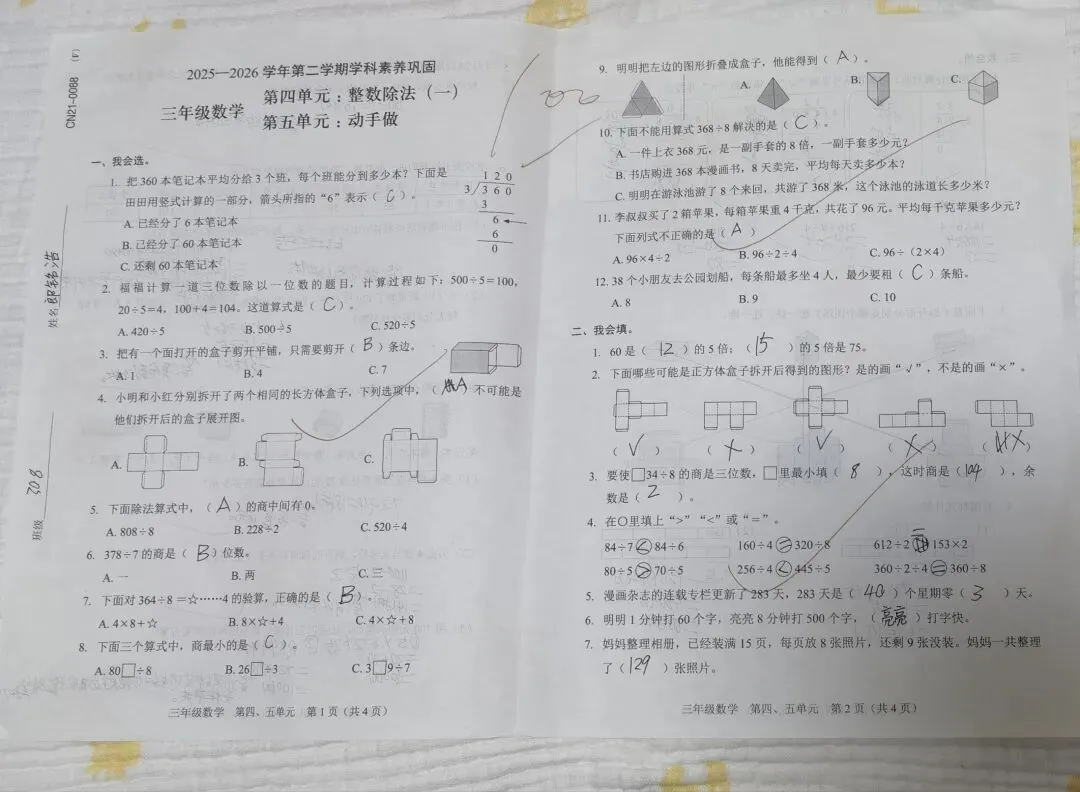 CN21-0088 (F)
姓名
班级 308
2025—2026 学年第二学期学科素养巩固
三年级数学
第四单元：整数除法（一）
第五单元：动手做
一、我会选。
1. 把 360 本笔记本平均分给 3 个班，每个班能分到多少本？下面是
田田用竖式计算的一部分，箭头所指的“6”表示（ C ）。
A. 已经分了 6 本笔记本
B. 已经分了 60 本笔记本
C. 还剩 60 本笔记本
1 2 0
3 3 6 0
3
6
6
0
2. 福福计算一道三位数除以一位数的题目，计算过程如下：500÷5=100，
20÷5=4，100+4=104。这道算式是（ C ）。
A. 420÷5 B. 500÷5 C. 520÷5
3. 把有一个面打开的盒子剪开平铺，只需要剪开（ B ）条边。
A. 1 B. 4 C. 7
4. 小明和小红分别拆开了两个相同的长方体盒子，下列选项中，（ A ）不可能是
他们拆开后的盒子展开图。
A. B. C.
5. 下面除法算式中，（ A ）的商中间有 0。
A. 808÷8 B. 228÷2 C. 520÷4
6. 378÷7 的商是（ B ）位数。
A. 一 B. 两 C. 三
7. 下面对 364÷8＝☆……4 的验算，正确的是（ B ）。
A. 4×8+☆ B. 8×☆+4 C. 4×☆+8
8. 下面三个算式中，商最小的是（ C ）。
A. 80□÷8 B. 26□÷3 C. 3□9÷7
三年级数学 第四、五单元 第 1 页（共 4 页）
9. 明明把左边的图形折叠成盒子，他能得到（ A ）。
A. B. C.
10. 下面不能用算式 368÷8 解决的是（ C ）。
A. 一件上衣 368 元，是一副手套的 8 倍，一副手套多少元？
B. 书店购进 368 本漫画书，8 天卖完，平均每天卖多少本？
C. 明明在游泳池游了 8 个来回，共游了 368 米，这个泳池的泳道长多少米？
11. 李叔叔买了 2 箱苹果，每箱苹果重 4 千克，共花了 96 元。平均每千克苹果多少元？
下面列式不正确的是（ A ）
A. 96×4÷2 B. 96÷2÷4 C. 96÷（2×4）
12. 38 个小朋友去公园划船，每条船最多坐 4 人，最少要租（ C ）条船。
A. 8 B. 9 C. 10
二、我会填。
1. 60 是（ 12 ）的 5 倍；（ 15 ）的 5 倍是 75。
2. 下面哪些可能是正方体盒子拆开后得到的图形？是的画“√”，不是的画“×”。
（ √ ） （ × ） （ √ ） （ × ） （ × ）
3. 要使□34÷8 的商是三位数，□里最小填（ 8 ），这时商是（ 104 ），余
数是（ 2 ）。
4. 在○里填上“>”“<”或“=”。
84÷7 < 84÷6 160÷4 = 320÷8 612÷2 = 153×2
80÷5 > 70÷5 256÷4 < 445÷5 360÷2÷4 = 360÷8
5. 漫画杂志的连载专栏更新了 283 天，283 天是（ 40 ）个星期零（ 3 ）天。
6. 明明 1 分钟打 60 个字，亮亮 8 分钟打 500 个字，（ 亮亮 ）打字快。
7. 妈妈整理相册，已经装满 15 页，每页放 8 张照片，还剩 9 张没装。妈妈一共整理
了（ 129 ）张照片。
三年级数学 第四、五单元 第 2 页（共 4 页）